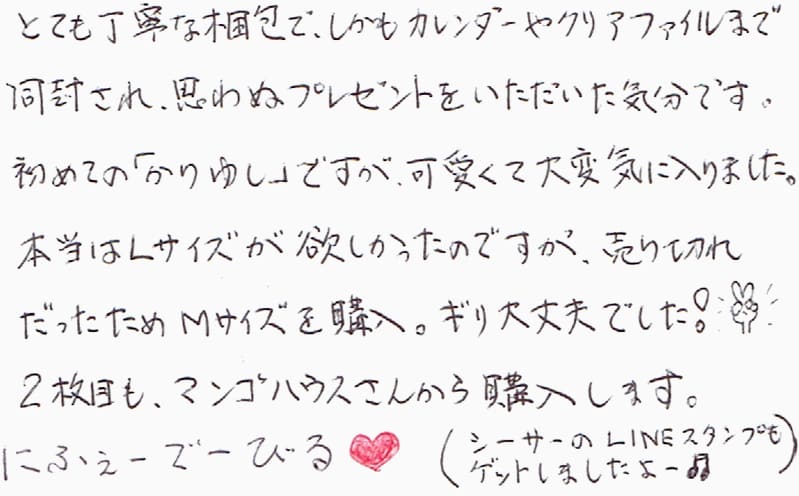 とても丁寧な梱包で、しかもカレンダーやクリアファイルまで
同封され、思わぬプレゼントをいただいた気分です。
初めての「かりゆし」ですが、可愛くて大変気に入りました。
本当はLサイズが欲しかったのですが、売り切れ
だったためMサイズを購入。ギリ大丈夫でした!
2枚目も、マンゴハウスさんから購入します。
にふぇーでーびる♥
(シーサーのLINEスタンプも
ゲットしましたよー♫)